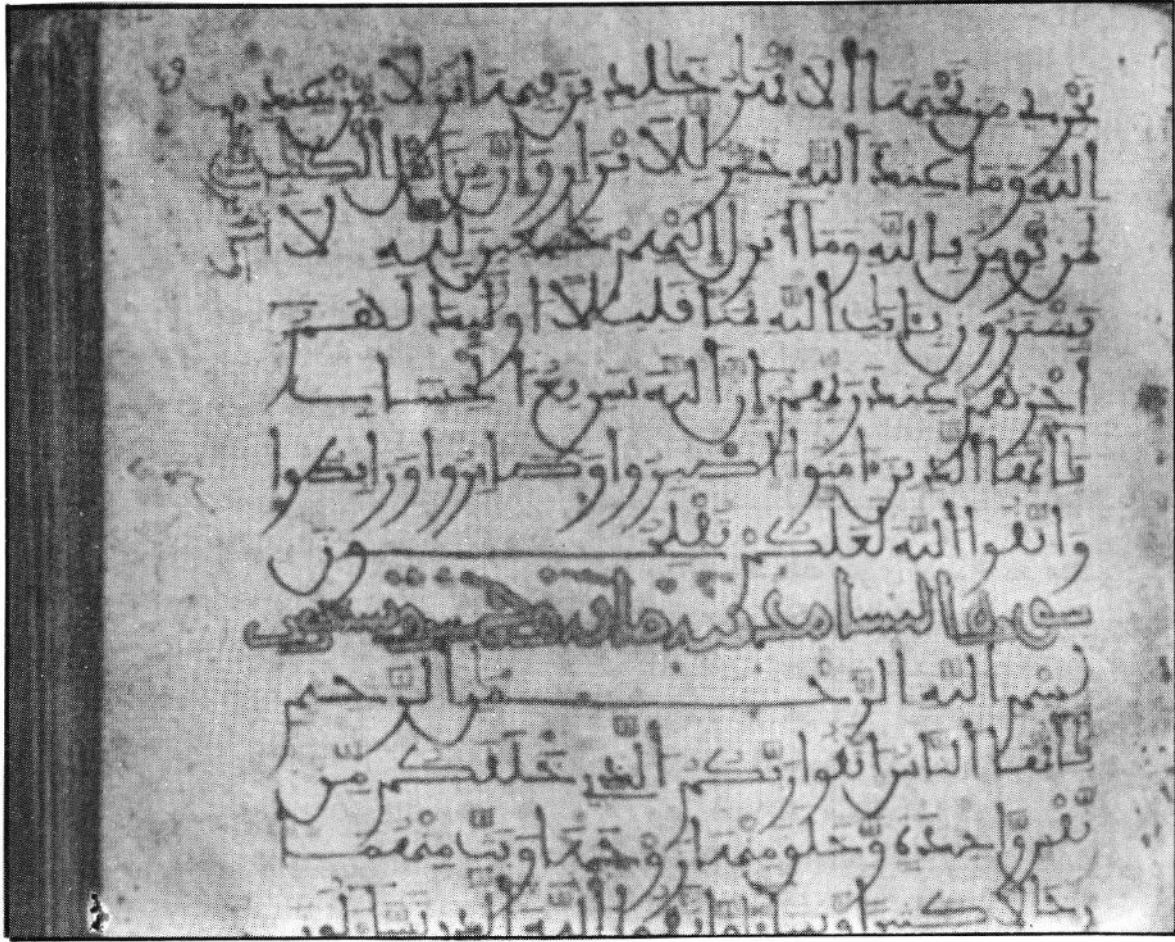 تجري من تحتها الانهر خلدين فيها نزلا من عند
الله وما عند الله خير للابرار وان من اهل الكتب
لمن يومن بالله وما انزل اليكم خشعين لله لا
يشترون بايت الله ثمنا قليلا اوليك لهم
اجرهم عند ربهم ان الله سريع الحساب
يايها الذين امنوا اصبروا وصابروا ورابطوا
واتقوا الله لعلكم تفلحون
سورة النسا مدنية ماية
بسم الله الرحمن الرحيم
يايها الناس اتقوا ربكم الذي خلقكم من
نفس واحدة وخلق منها زوجها وبث منهما
رجالا كثيرا ونسا واتقوا الله الذي تسالون